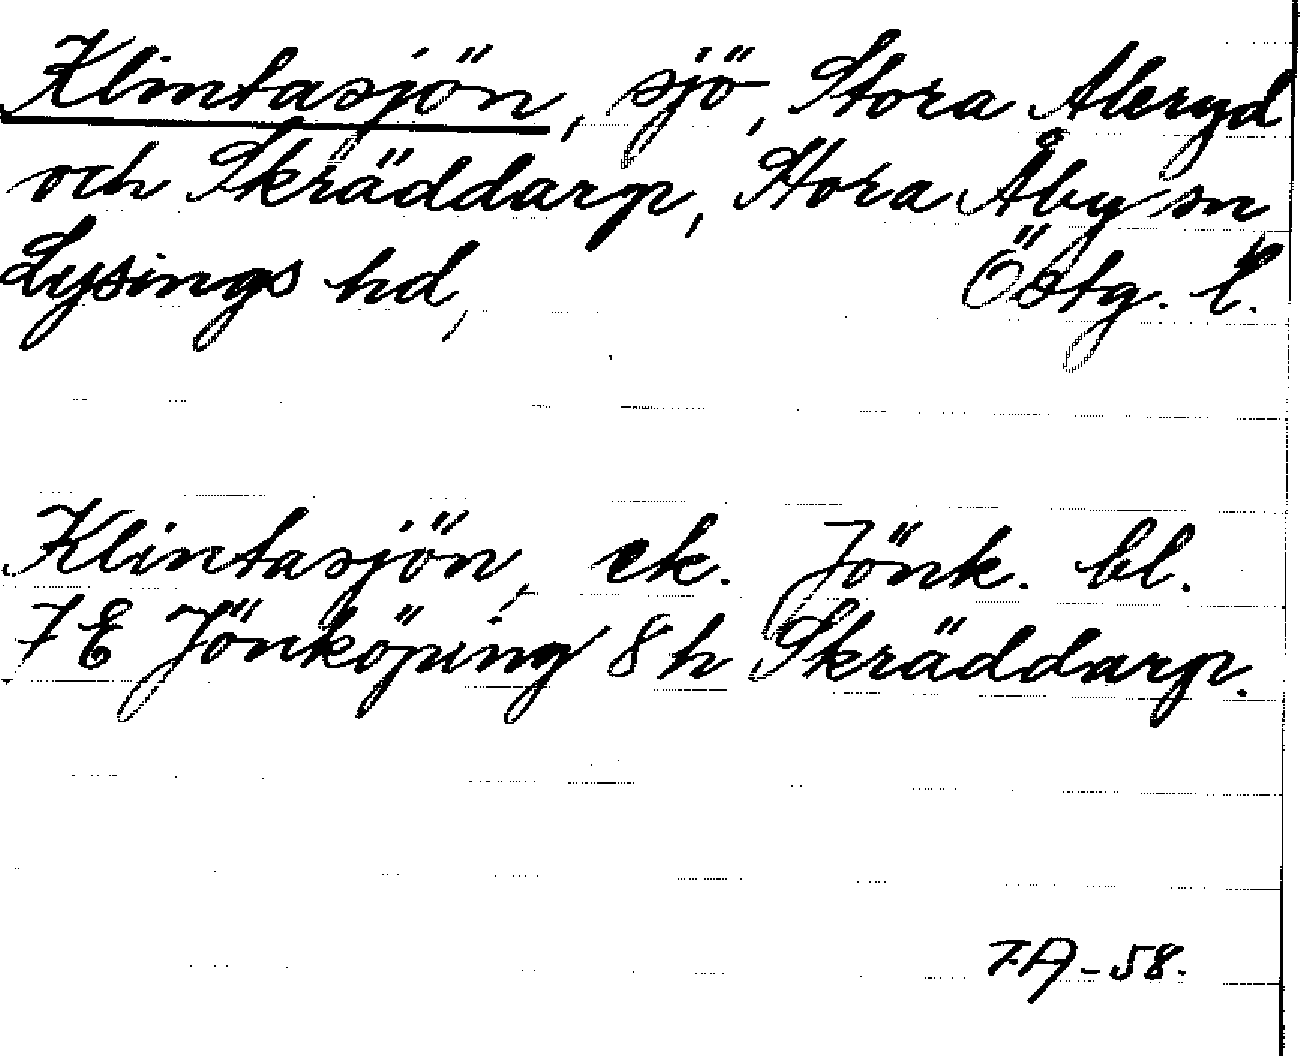 Klintasjön, sjö, Stora Åberyd
och Skräddarp, Stora Åby sn
Lysings hd, Östg. l.
Klintasjön, ek. Jönk. bl.
7 E Jönköping 8 h Skräddarp.
FA-58.